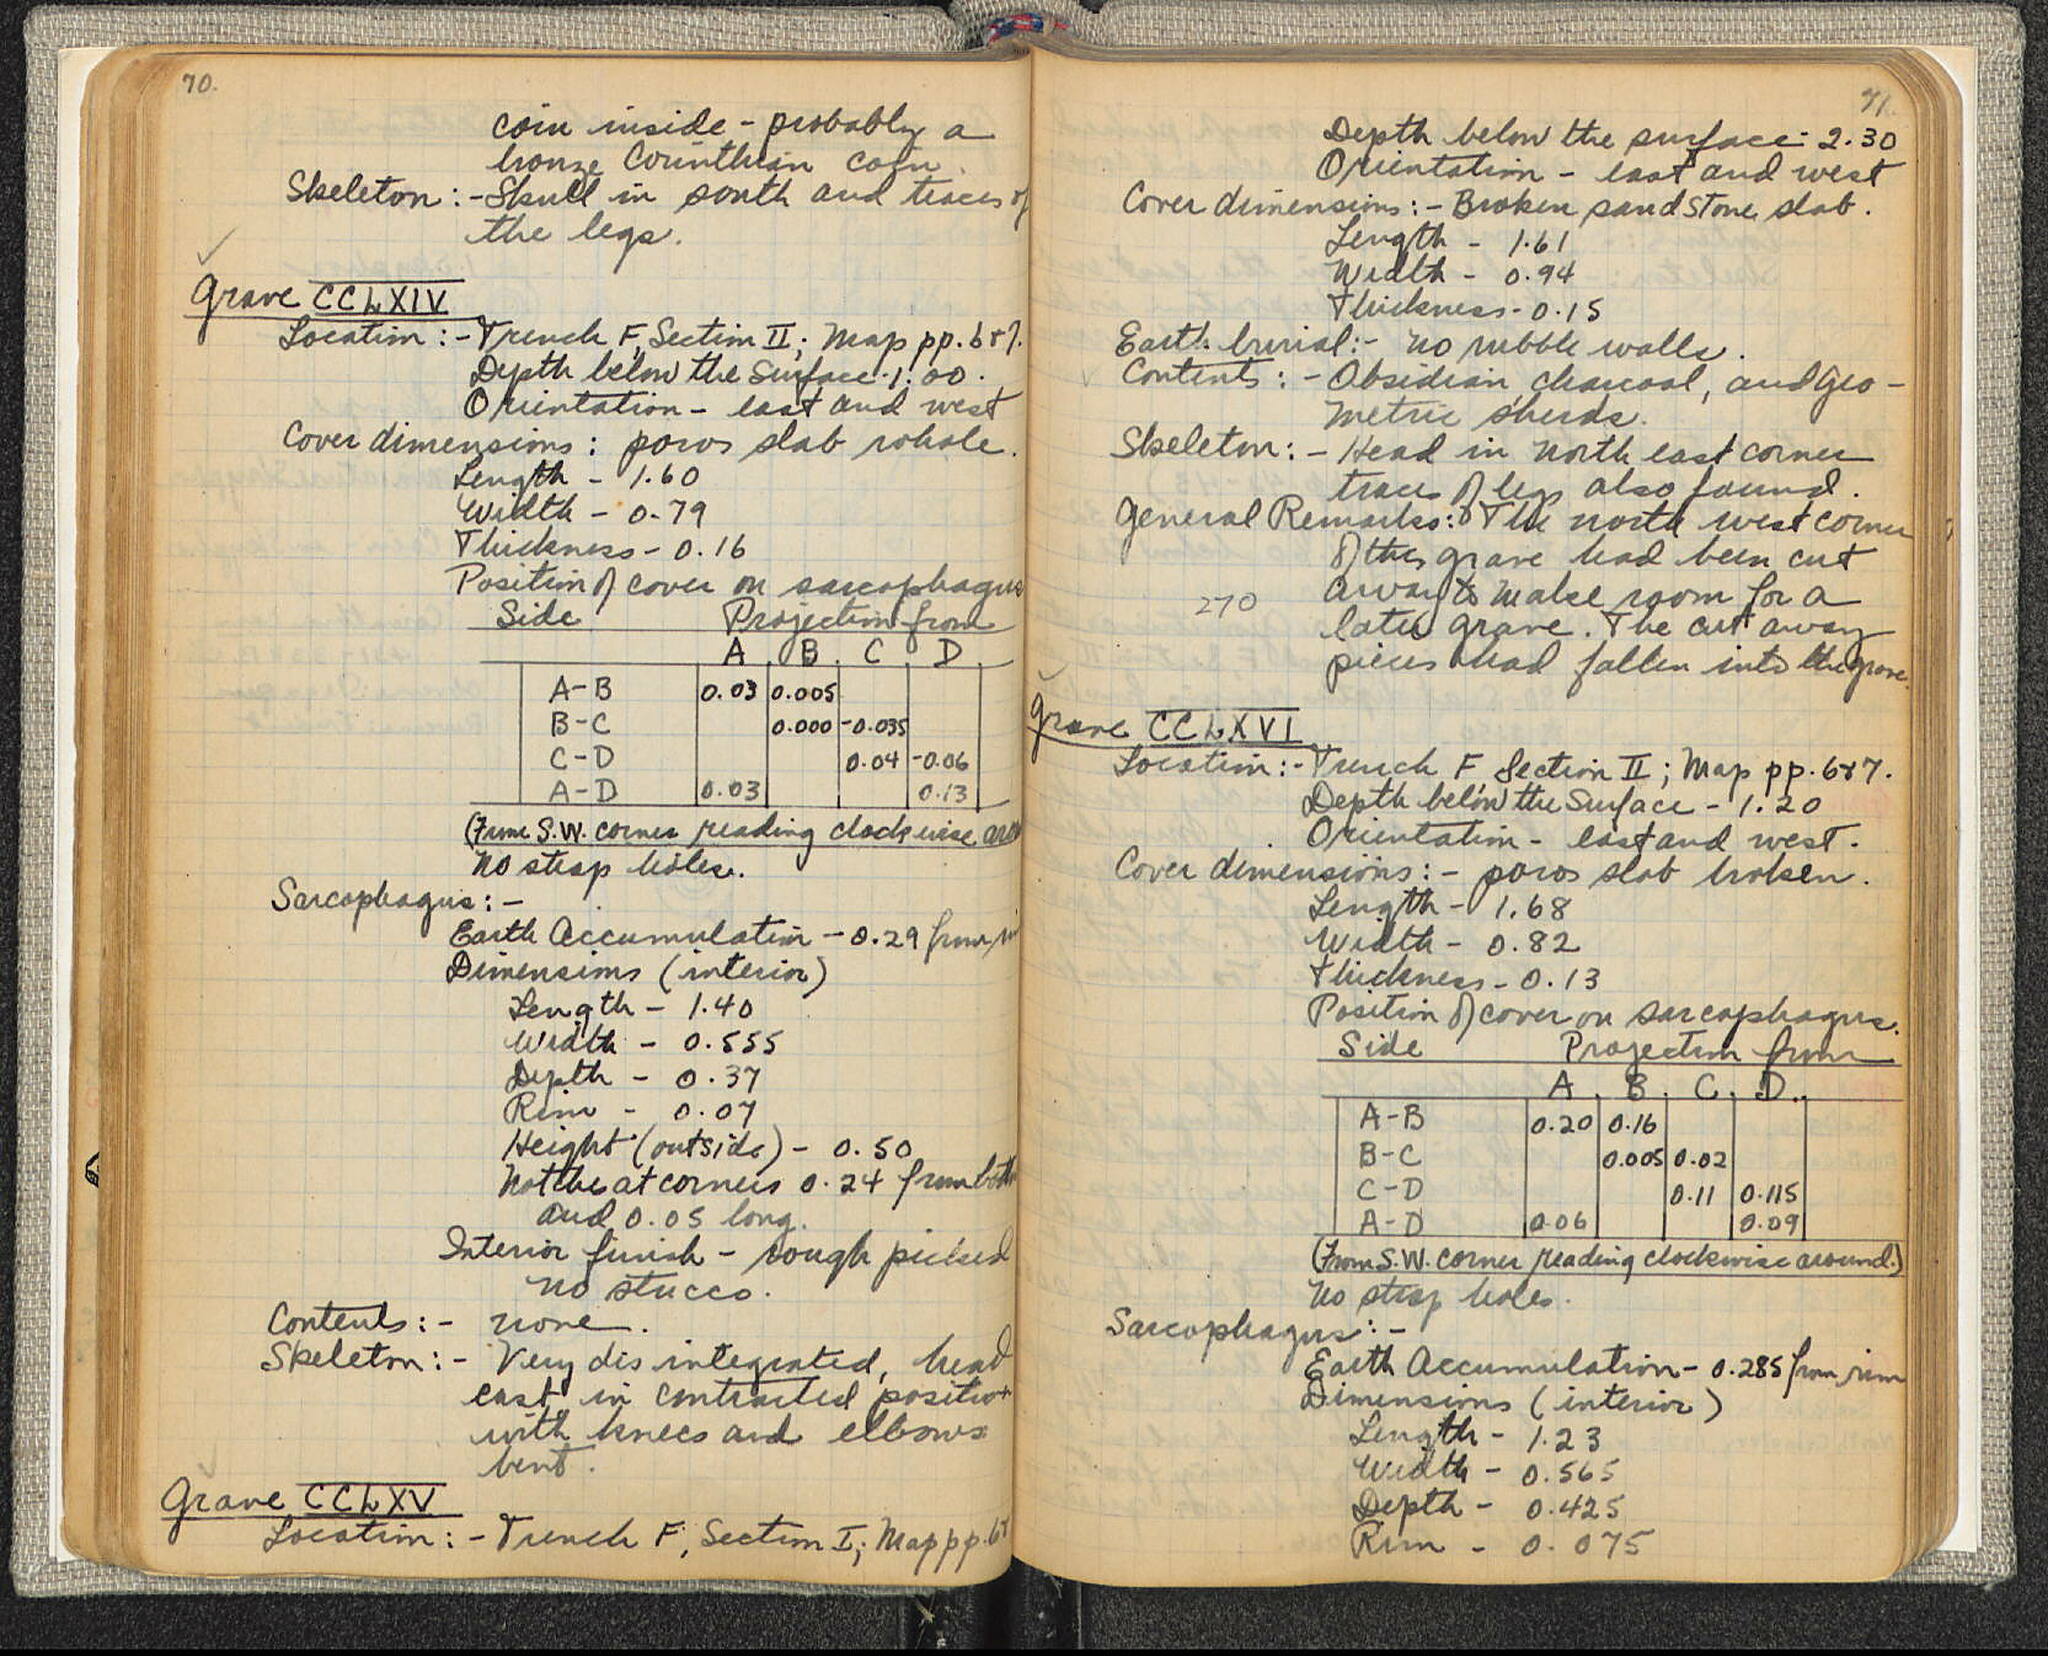 70.
coin inside - probably a
bronze Corinthian coin.
Skeleton: - Skull in south and traces of
the legs.
Grave CCLXIV
Location: - Trench F, Section II; Map pp. 6+7.
Depth below the surface - 1.00.
Orientation - east and west
Cover dimensions: poros slab whole.
Length - 1.60
Width - 0.79
Thickness - 0.16
Position of cover on sarcophagus
Side Projection from
A B C D
A-B 0.03 0.005
B-C 0.000 -0.035
C-D 0.04 -0.06
A-D 0.03 0.13
(From S.W. corner reading clockwise
No strap holes.
Sarcophagus: -
Earth Accumulation - 0.29 from
Dimensions (interior)
Length - 1.40
Width - 0.555
Depth - 0.37
Rim - 0.07
Height (outside) - 0.50
Notche at corners 0.24 from
and 0.05 long.
Interior finish - rough picked
no stucco.
Contents: - none.
Skeleton: - Very disintegrated, head
east in contracted position
with knees and elbows
bent.
Grave CCLXV
Location: - Trench F, Section I; Map pp. 6+
71.
Depth below the surface - 2.30
Orientation - east and west
Cover dimensions: - Broken sandstone slab.
Length - 1.61
Width - 0.94
Thickness - 0.15
Earth burial: - no rubble walls.
Contents: - Obsidian, charcoal, and geo-
metric sherds.
Skeleton: - Head in north east corner
traces of legs also found.
General Remarks: - The north west corner
of this grave had been cut
away to make room for a
270
later grave. The cut away
pieces had fallen into the grave.
Grave CCLXVI
Location: - Trench F Section II; Map pp. 6+7.
Depth below the Surface - 1.20
Orientation - east and west.
Cover dimensions: - poros slab broken.
Length - 1.68
Width - 0.82
Thickness - 0.13
Position of cover on sarcophagus.
Side Projection from
A B C D
A-B 0.20 0.16
B-C 0.005 0.02
C-D 0.11 0.115
A-D 0.06 0.09
(From S.W. corner reading clockwise around.)
No strap holes.
Sarcophagus: -
Earth Accumulation - 0.285 from rim
Dimensions (interior)
Length - 1.23
Width - 0.565
Depth - 0.425
Rim - 0.075